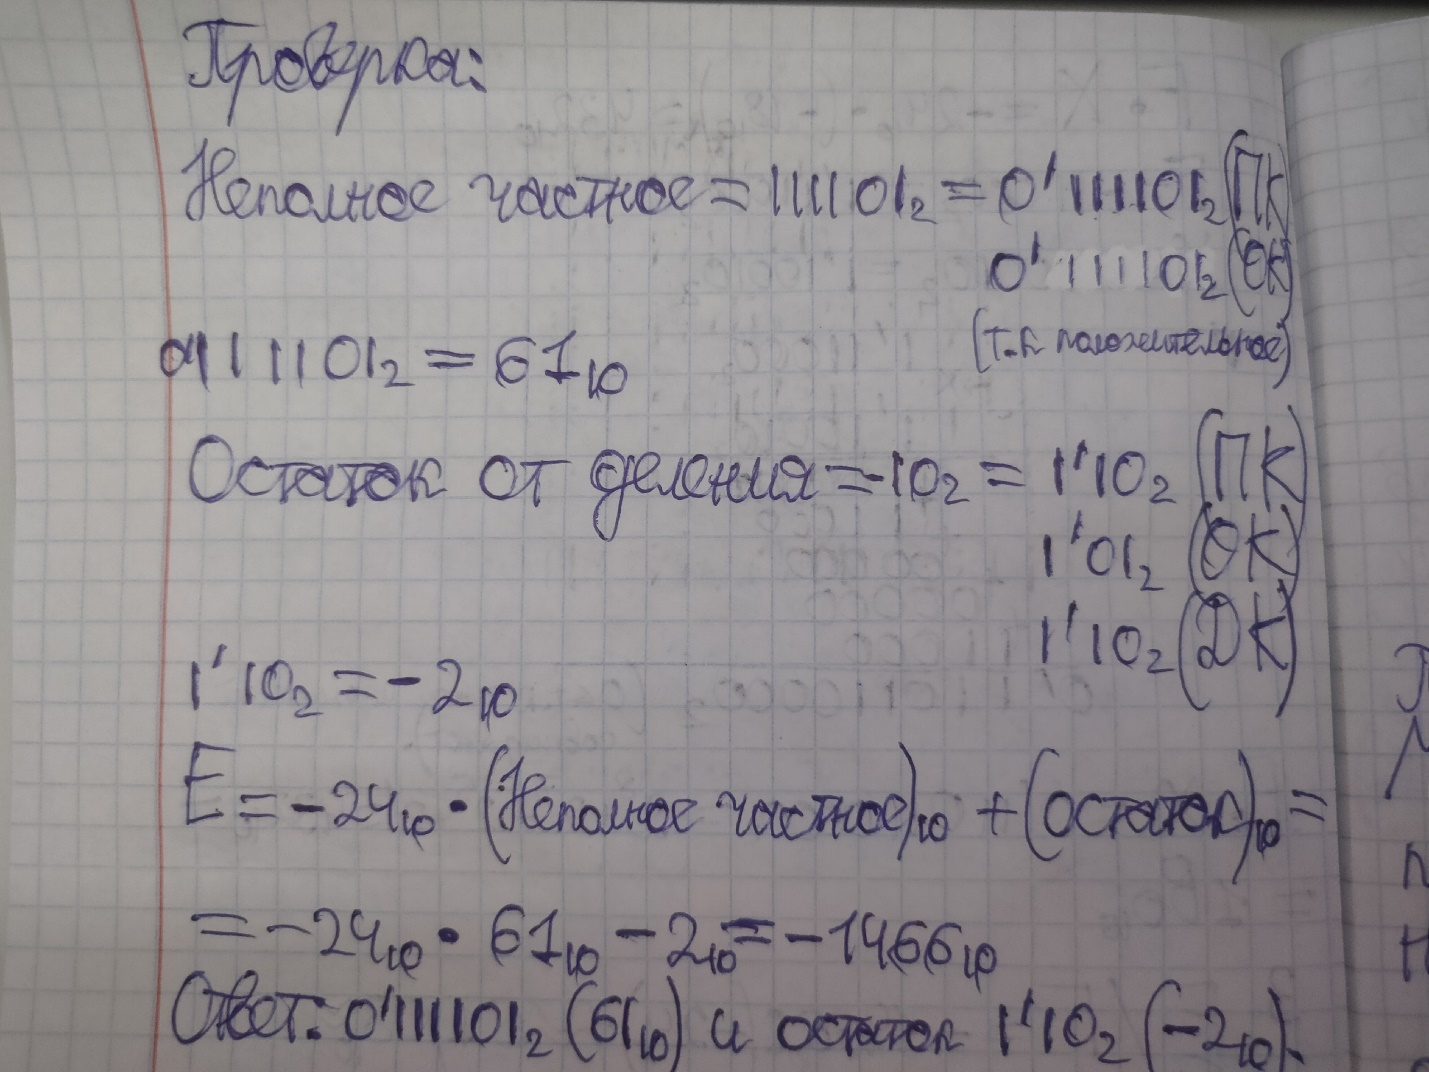 Проверка:
Неполное частное = 111101₂ = 0'111101₂ (ПК)
0'111101₂ (ОК)
(т.к положительное)
0'111101₂ = 61₁₀
Остаток от деления = -10₂ = 1'10₂ (ПК)
1'01₂ (ОК)
1'10₂ (ДК)
1'10₂ = -2₁₀
E = -24₁₀ • (Неполное частное)₁₀ + (остаток)₁₀ =
= -24₁₀ • 61₁₀ - 2₁₀ = -1466₁₀
Ответ: 0'111101₂ (61₁₀) и остаток 1'10₂ (-2₁₀).